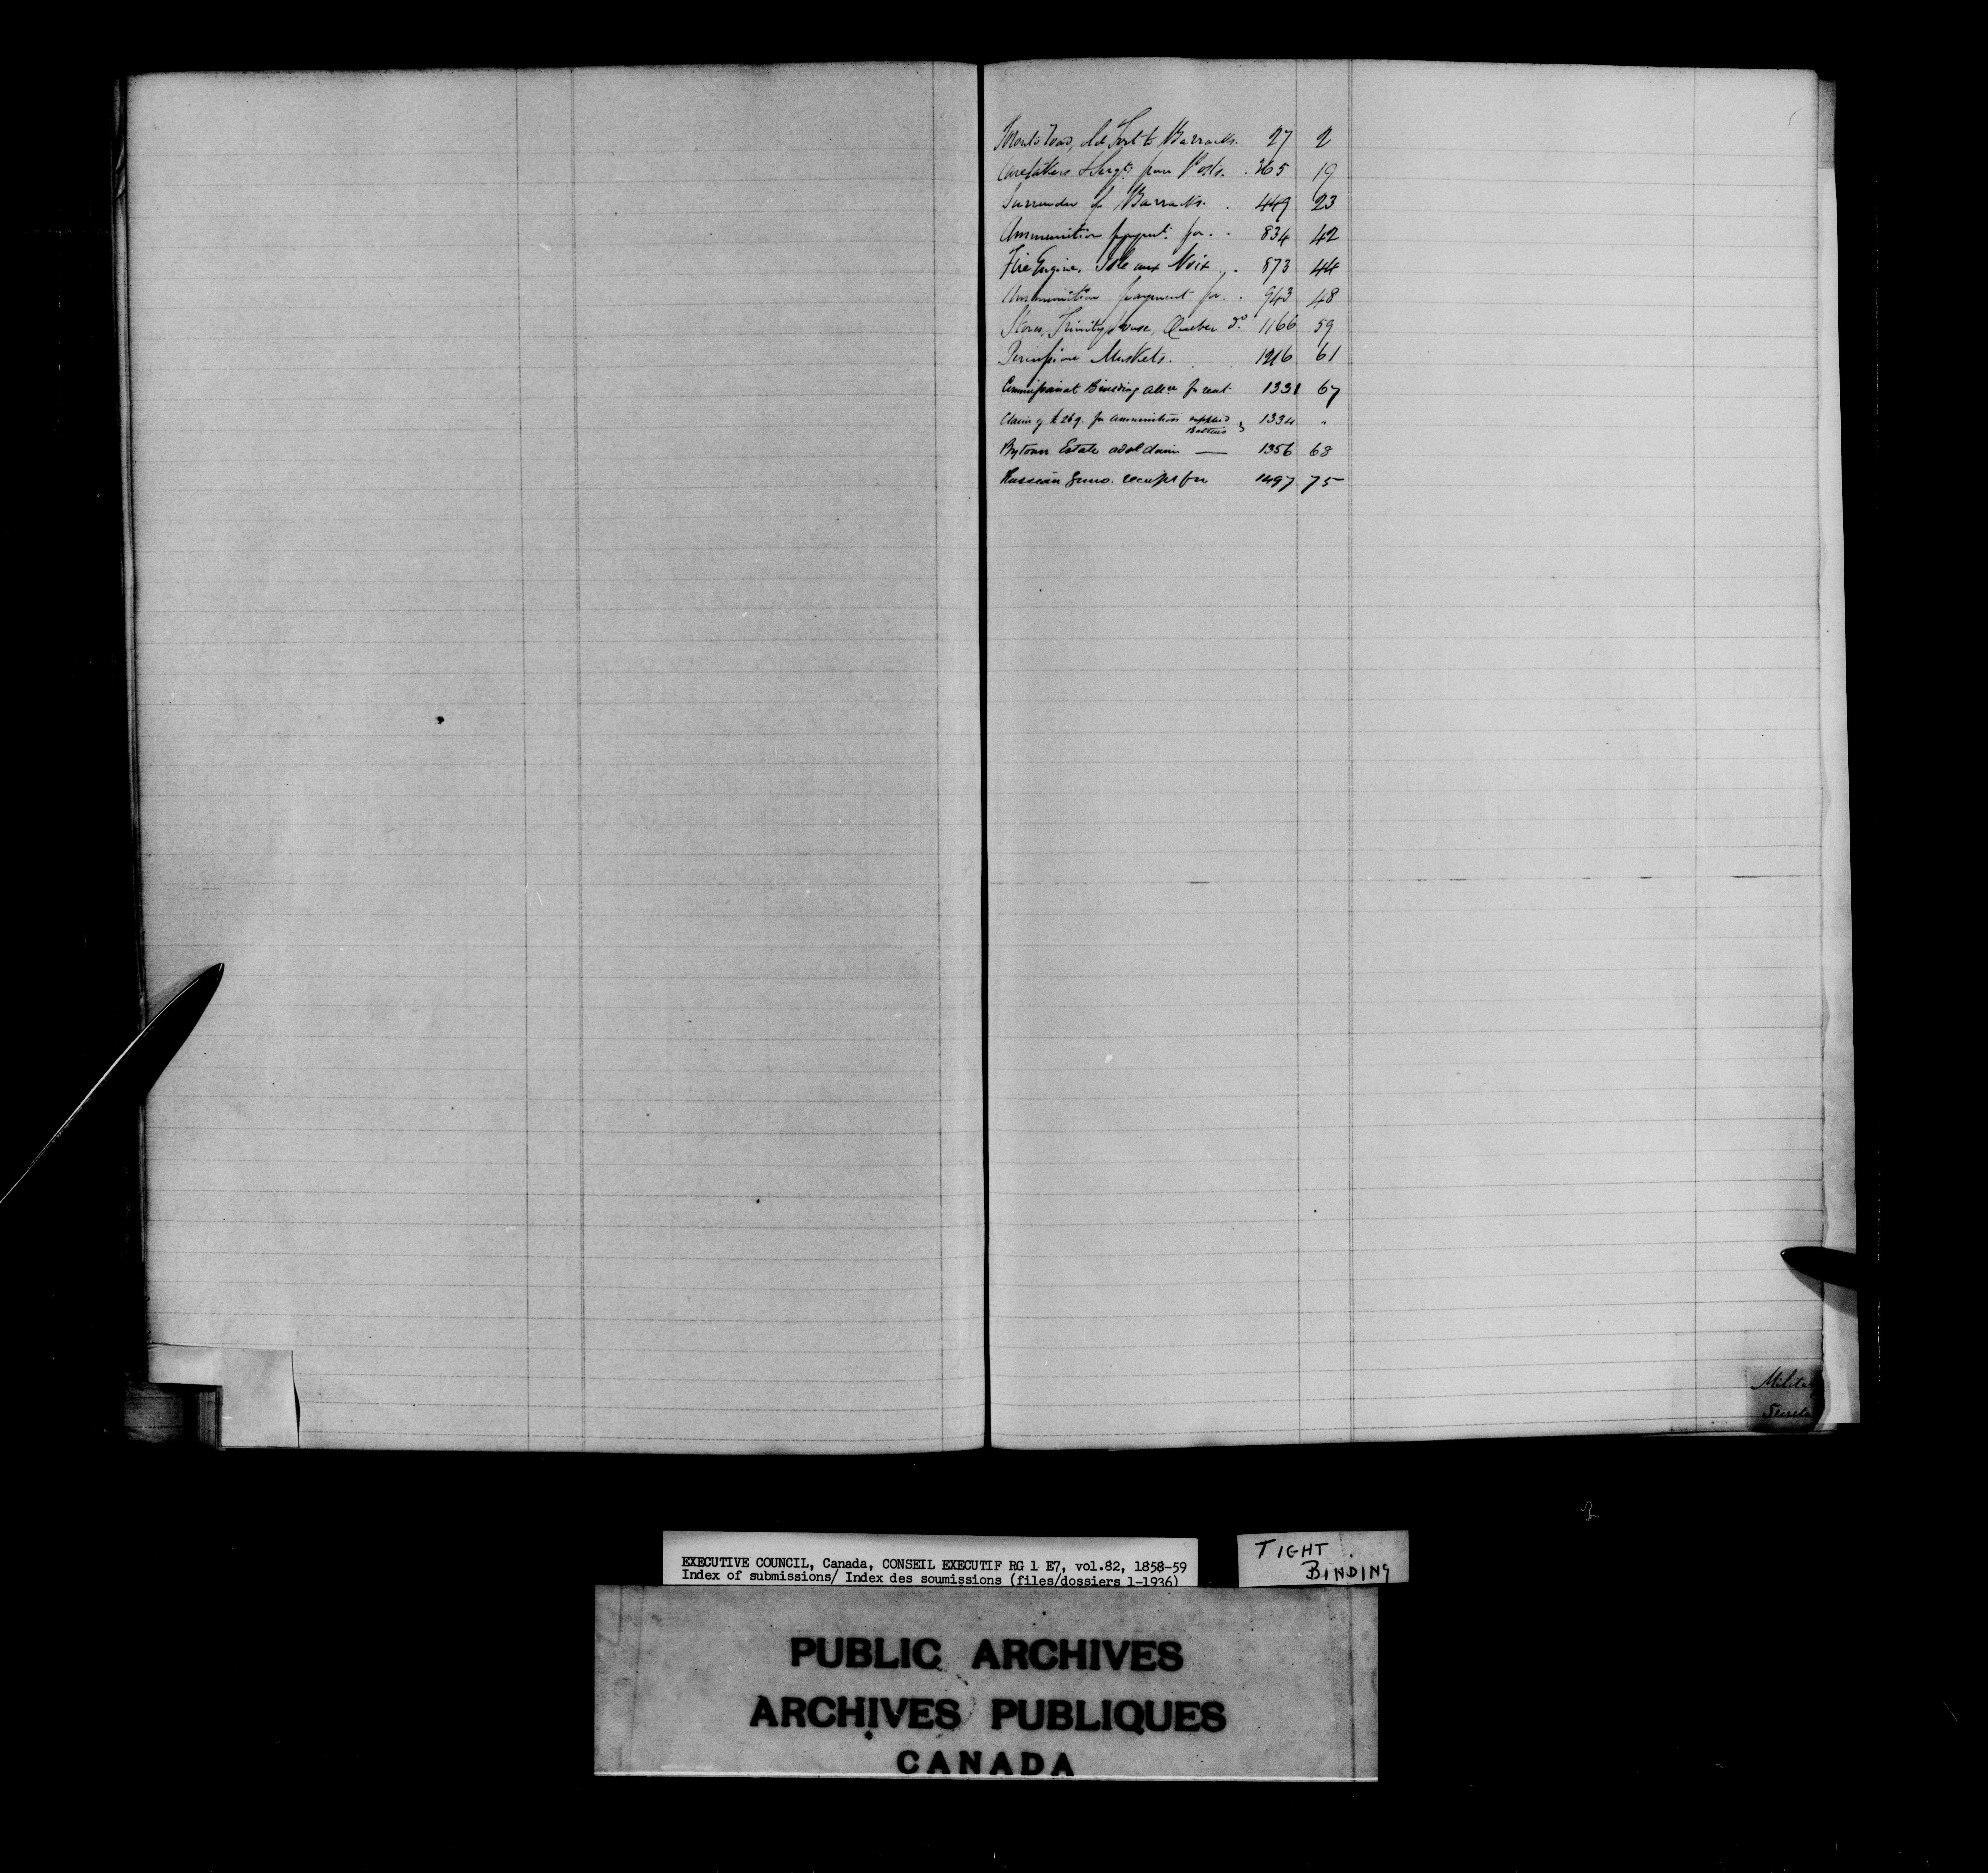 Toronto Road, Old Fort to Barracks. 27 2
Caretakers & Sergts from Posts. 365 19
Surrender of Barracks. 449 23
Ammunition paymt. for. 834 42
Fire Engine, Isle aux Noix 873 44
Ammunition payment for. 943 48
Stores, Trinity House, Quebec do. 1166 59
Percussion Muskets. 1216 61
Commissariat Building for rent 1331 67
Claim of for ammunition supplied 1334 "
Bytown Estate claim — 1356 68
Russian Guns. receipt for 1497 75
Milita
Secreta
EXECUTIVE COUNCIL, Canada, CONSEIL EXECUTIF RG 1 E7, vol.82, 1858-59
Index of submissions/ Index des soumissions (files/dossiers 1-1936)
TIGHT
BINDING
PUBLIC ARCHIVES
ARCHIVES PUBLIQUES
CANADA